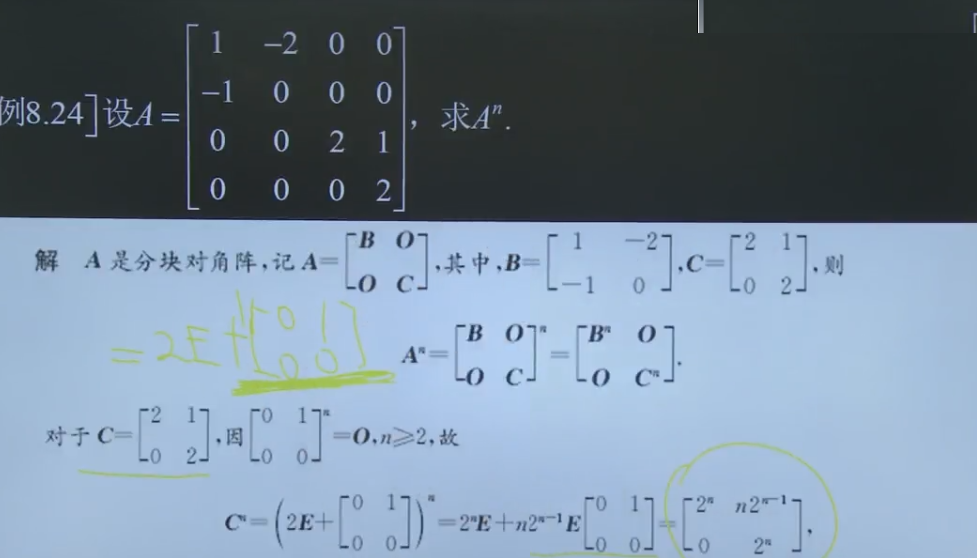 例8.24]设A=[1 -2 0 0; -1 0 0 0; 0 0 2 1; 0 0 0 2], 求Aⁿ.
解 A 是分块对角阵,记 A=[B O; O C],其中,B=[1 -2; -1 0],C=[2 1; 0 2],则
=2E+[0 1; 0 0]
Aⁿ=[B O; O C]ⁿ=[Bⁿ O; O Cⁿ].
对于 C=[2 1; 0 2],因[0 1; 0 0]ⁿ=O,n≥2,故
Cⁿ=(2E+[0 1; 0 0])ⁿ=2ⁿE+n2ⁿ⁻¹E[0 1; 0 0]=[2ⁿ n2ⁿ⁻¹; 0 2ⁿ],